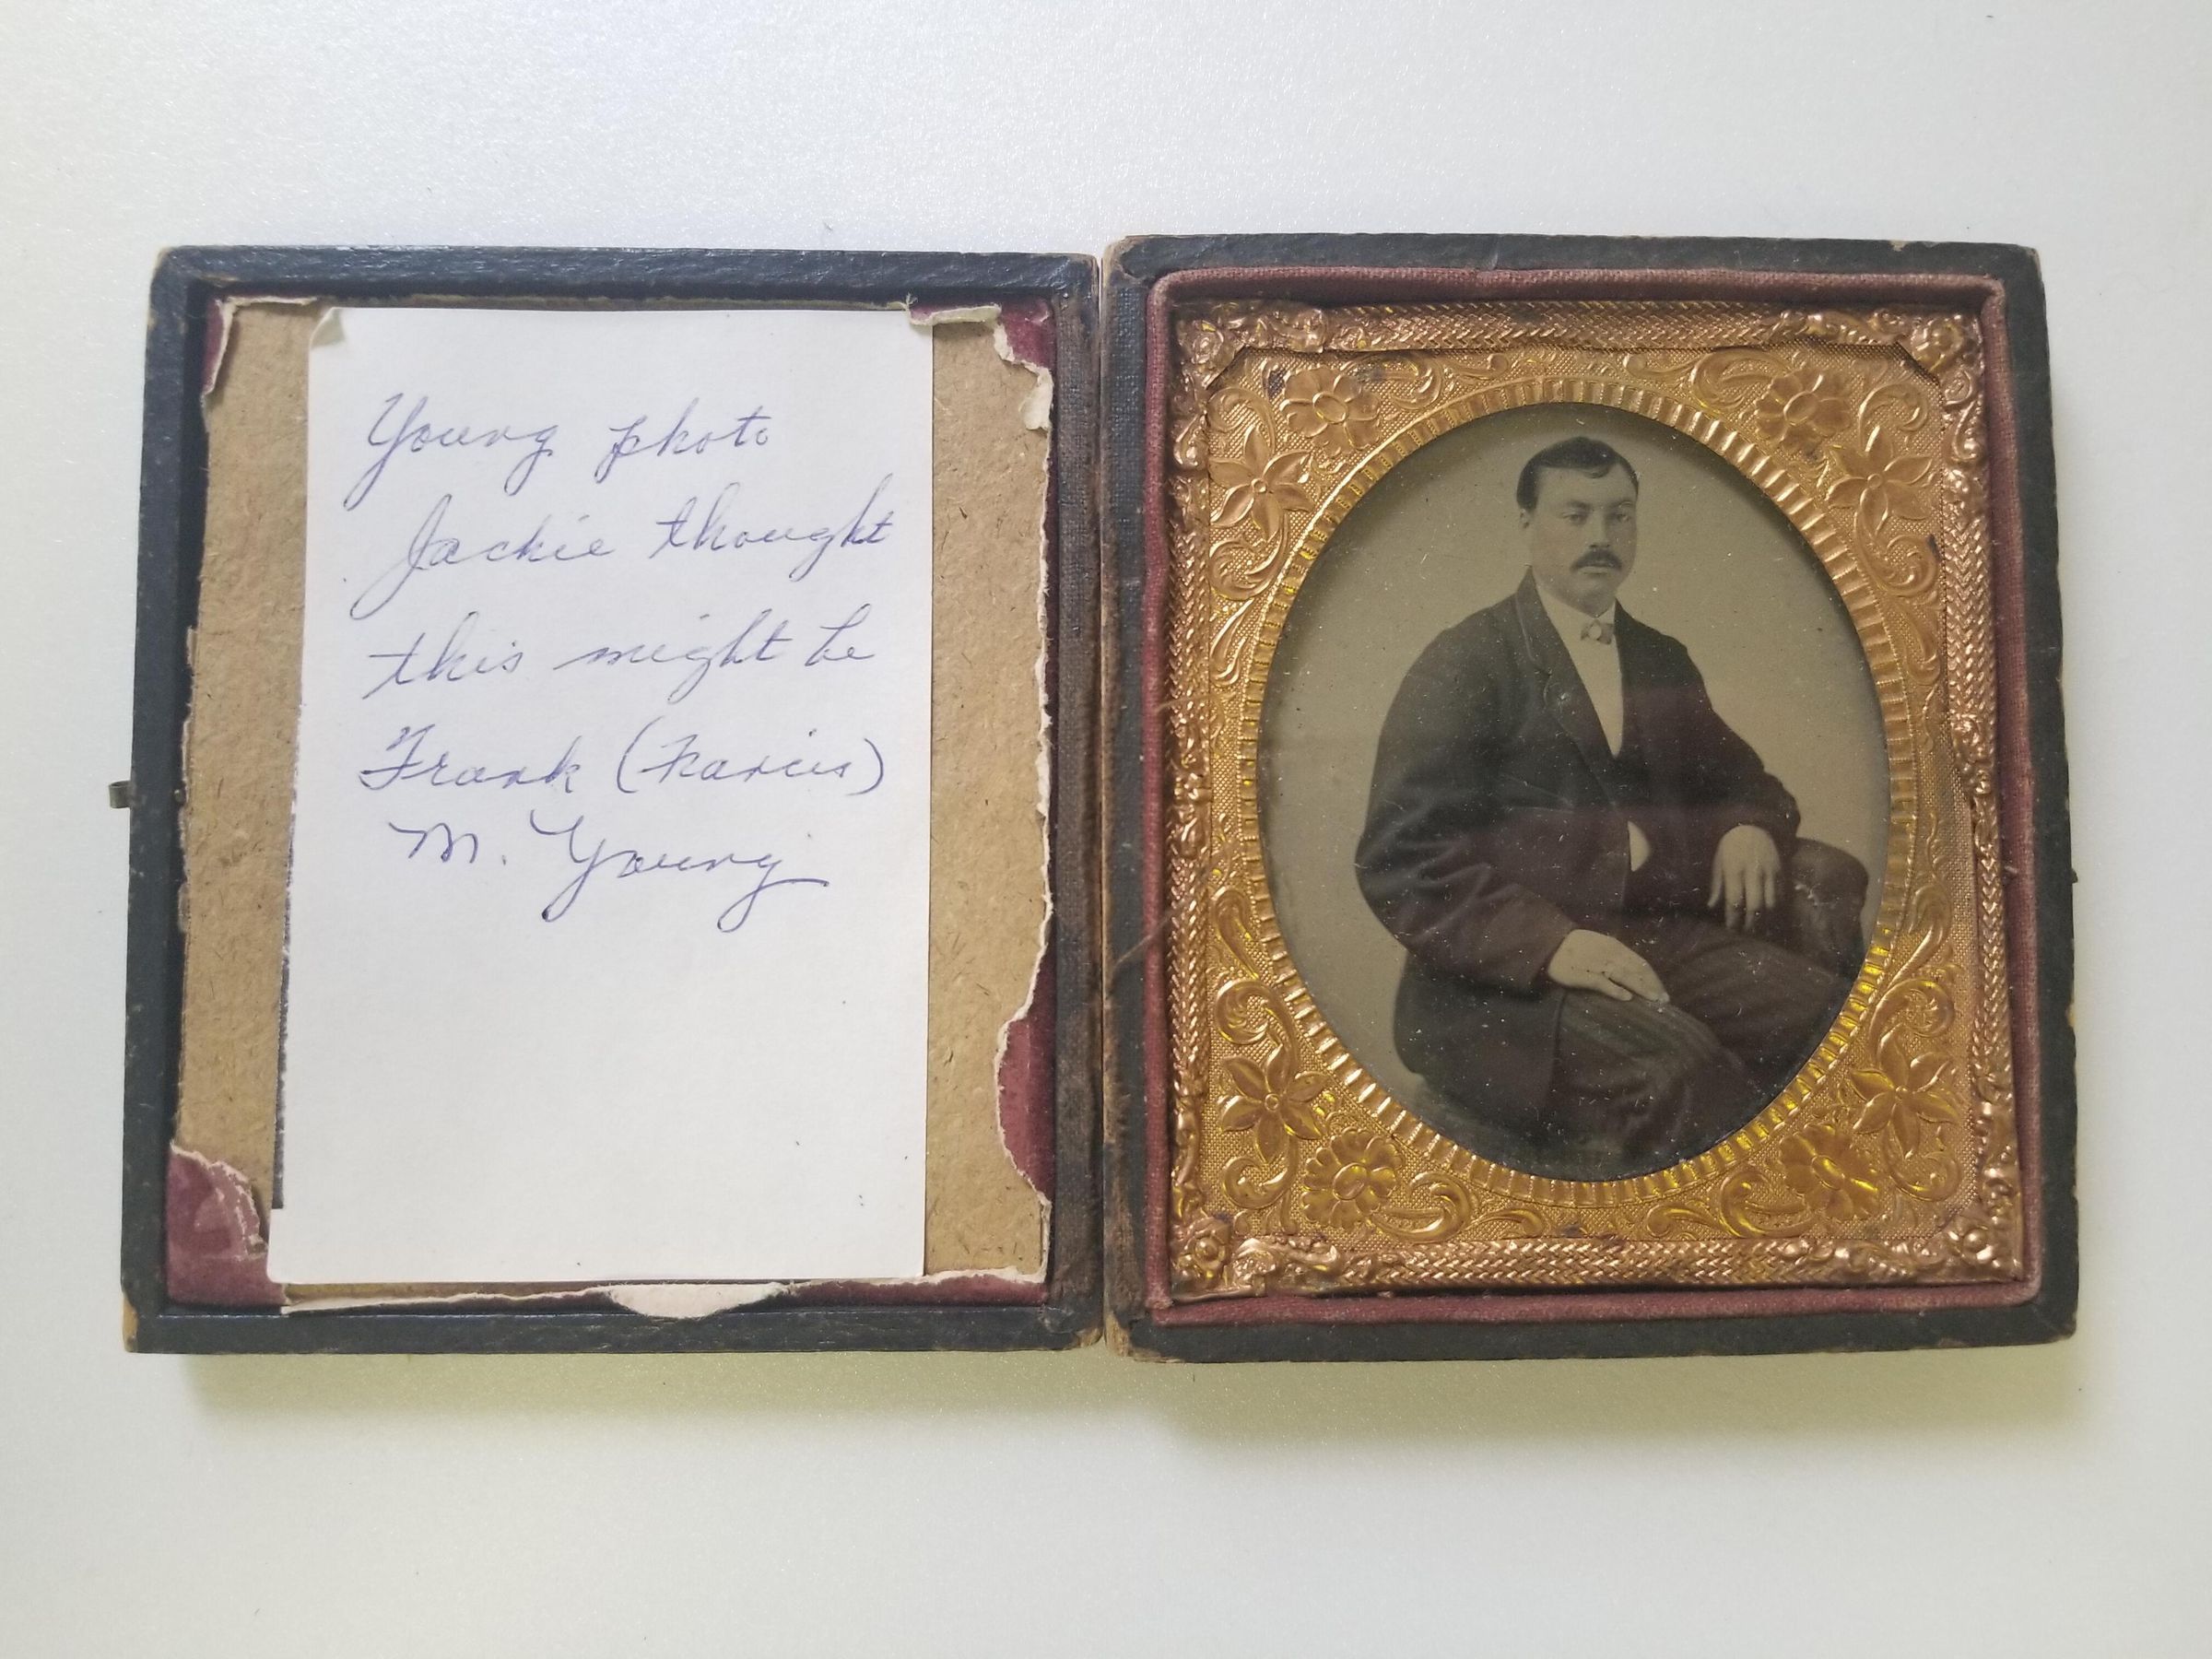 Young photo
Jackie thought
this might be
Frank (Francis)
M. Young